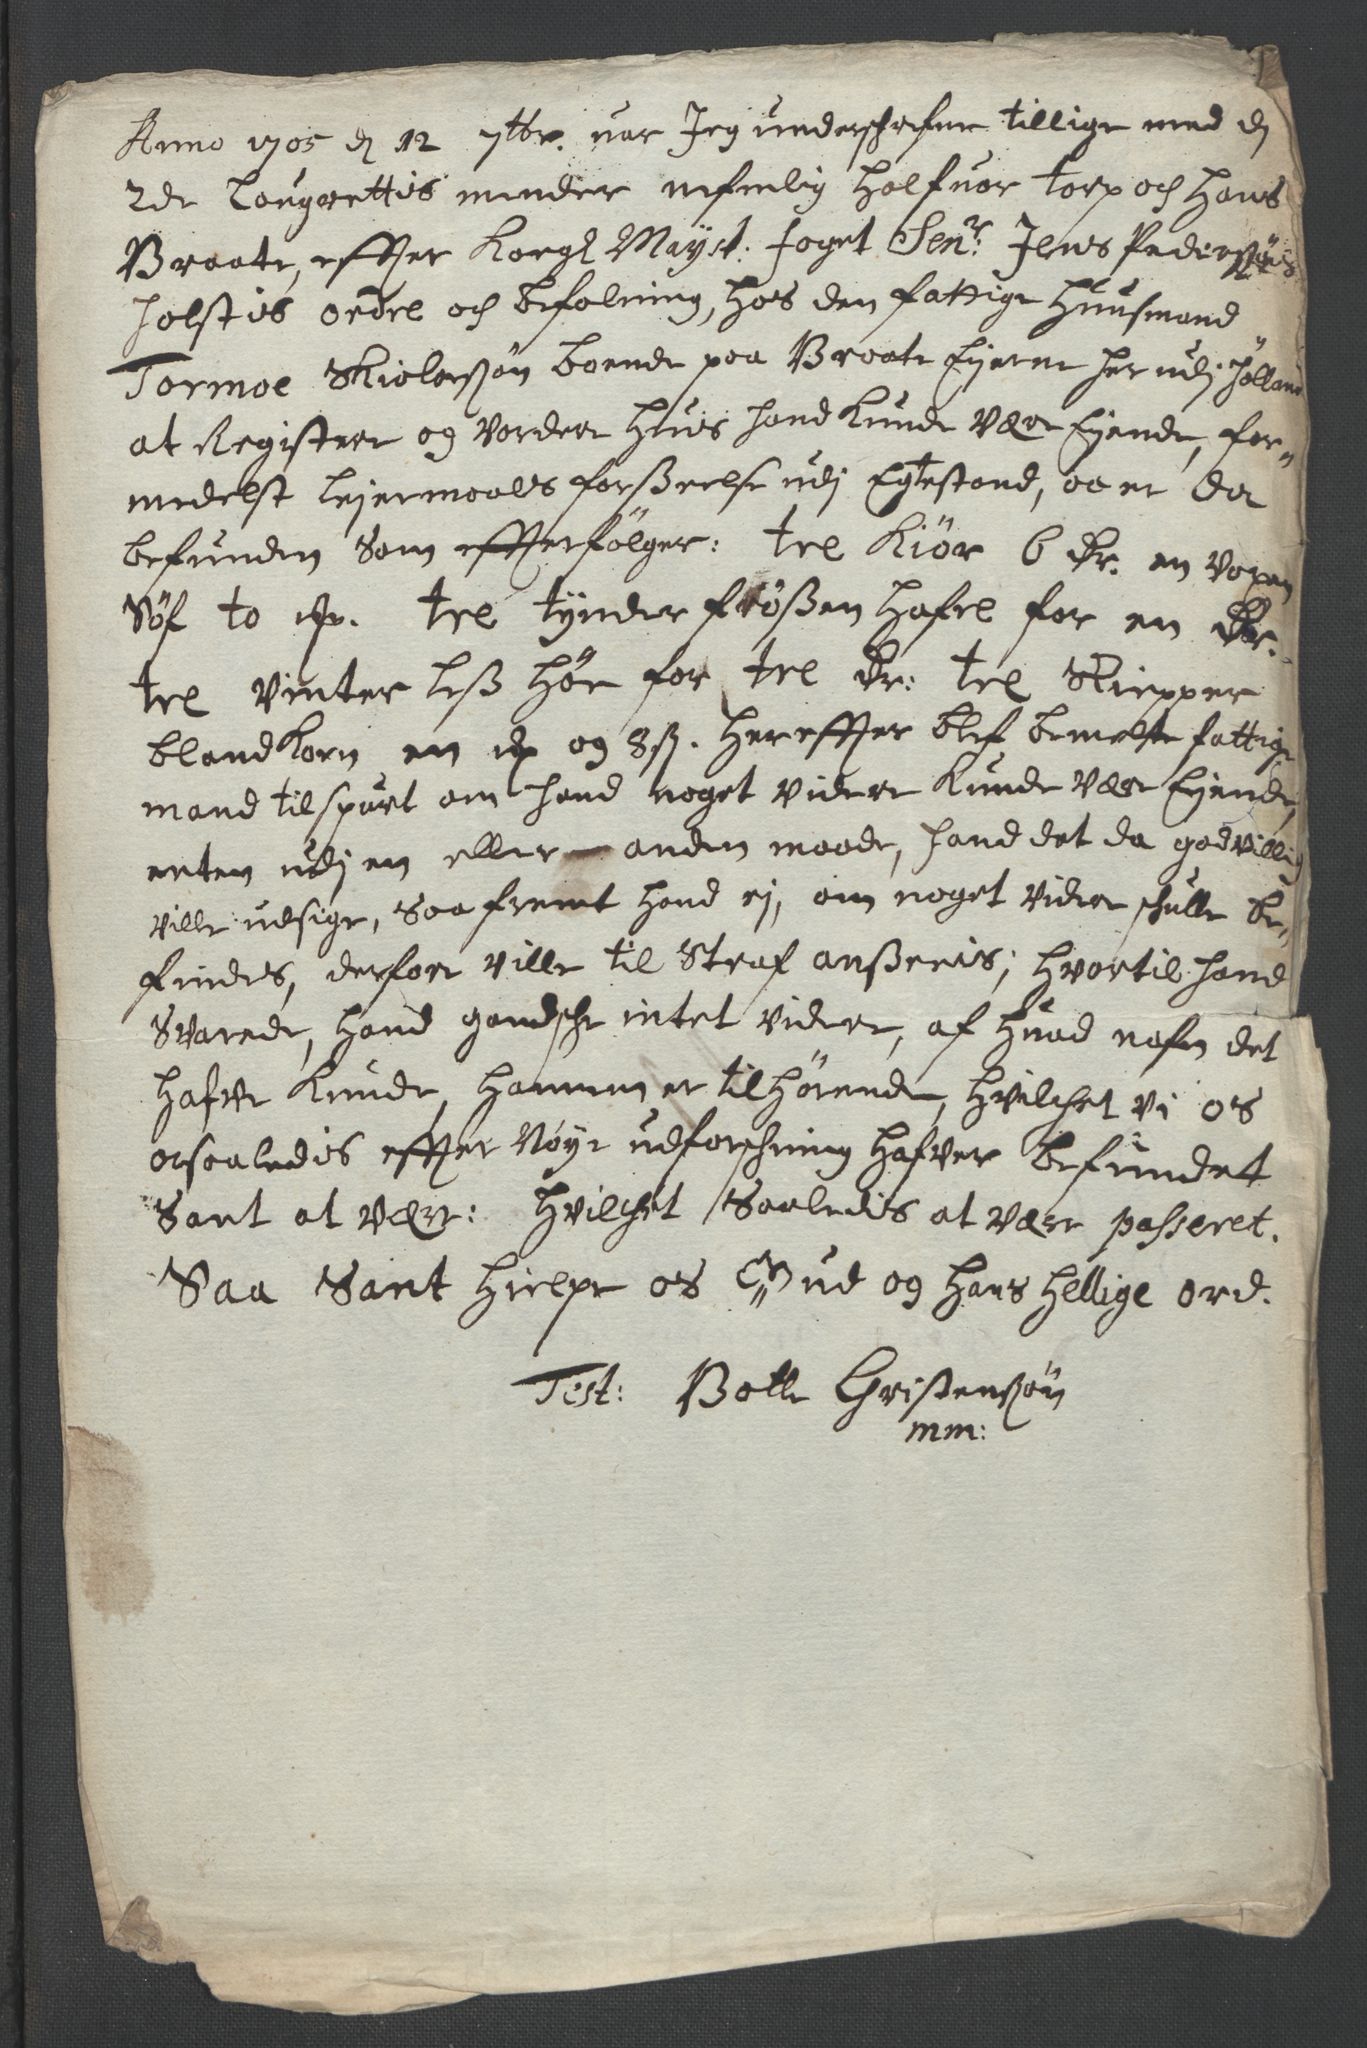 Anno 1705 d 12 7tbr. var Jeg underschrefne tillige med d
2de Laugrettis mender nefnlig Halfuor Torp och Hans
Braate, effter Kongl Mayst. foget Senr. Jens Pedersøns
Holstes ordre och befalning, hos den fattige Huusmand
Tormoe Skiolersøn boende paa Braate Eyerne her udj Høland
at Registere og Vordere Hves hand kunde være Eyende, for-
medelst Leyermaals forßeelse udj Egtestand, oc er da
befunden som effterfølger: tre Kiør 6 Dr. en voxen
Søf to . tre tynder frößen Hafre for en Dr.
tre vinter leß Høe for tre Dr: tre Skiepper
blandkorn en  og 8 ß. Hereffter blef bemelte fattige
mand tilspurt om hand noget videre kunde være Eyende,
enten udj en eller anden maade, hand det da godvillig
ville udsige, saa fremt hand ej, om noget videre schulle be-
findes, derfore ville til Straf anßeeis; hvortil hand
Svarede, hand gandsche intet videre, af Huad nafn det
hafve kunde, hannem er tilhørende, hvilchet vi os
ocsaaledis effter Nøye udforschning hafver befundet
Sant at være: hvilchet Saaledis at være passeret.
Saa Sant hielpe os Gud og hans hellige ord.
Test: Botle Christensøn
mm: